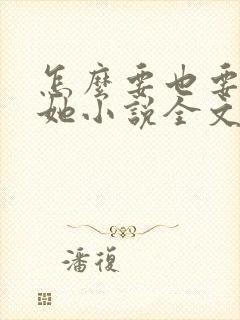 怎麼要也要
她小說全文
潘復